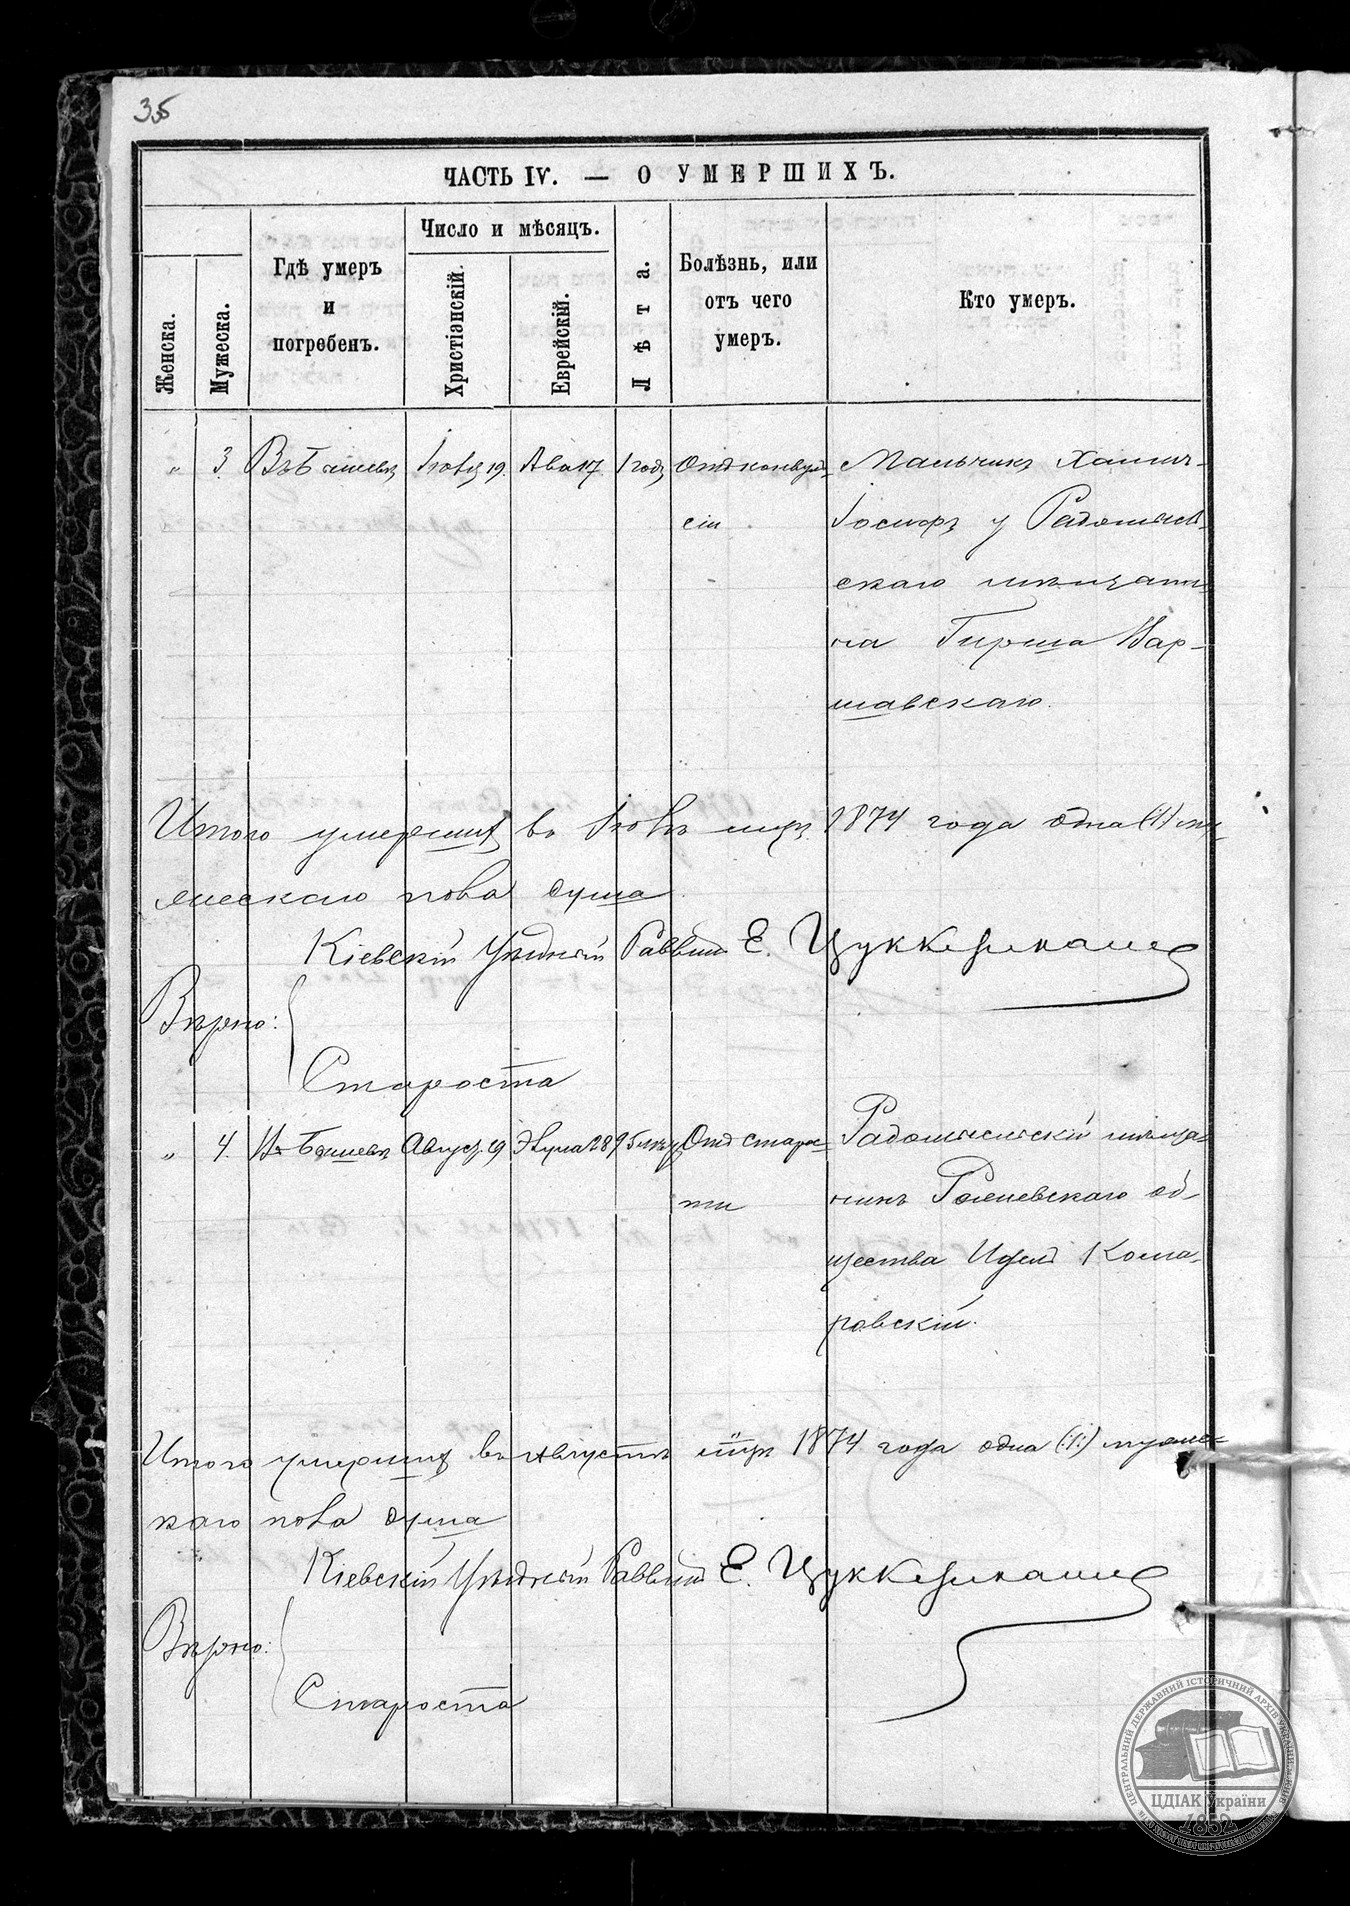 35
ЧАСТЬ IV. — О УМЕРШИХЪ.
Женска.
Мужеска.
Гдѣ умеръ
и
погребенъ.
Число и мѣсяцъ.
Христіанскій.
Еврейскій.
Лѣта.
Болѣзнь, или
отъ чего
умеръ.
Кто умеръ.
" 3. Въ Бышевѣ Іюля 19. Ава 17 1 годъ Отъ конвуль- Мальчикъ Хаимъ-
сіи Іосифъ у Радомысль-
скаго мѣщани-
на Гирша Вар-
шавскаго.
Итого умершихъ въ Іюлѣ мцѣ 1874 года одна (1) му-
жескаго пола душа.
Кіевскій Уѣздный Раввинъ Е. Цуккерманъ
Вѣрно:
Староста
" 4. Въ Бышевѣ Август. 29 Элула 28 95 лѣтъ Отъ старос- Радомысльскій мѣща-
ти нинъ об-
щества Кома-
ровскій.
Итого умершихъ въ Августѣ мцѣ 1874 года одна (:1:) мужес-
каго пола душа
Кіевскій Уѣздный Раввинъ Е. Цуккерманъ
Вѣрно:
Староста
ЦЕНТРАЛЬНИЙ ДЕРЖАВНИЙ ІСТОРИЧНИЙ АРХІВ УКРАЇНИ
ЦДІАК України
1852